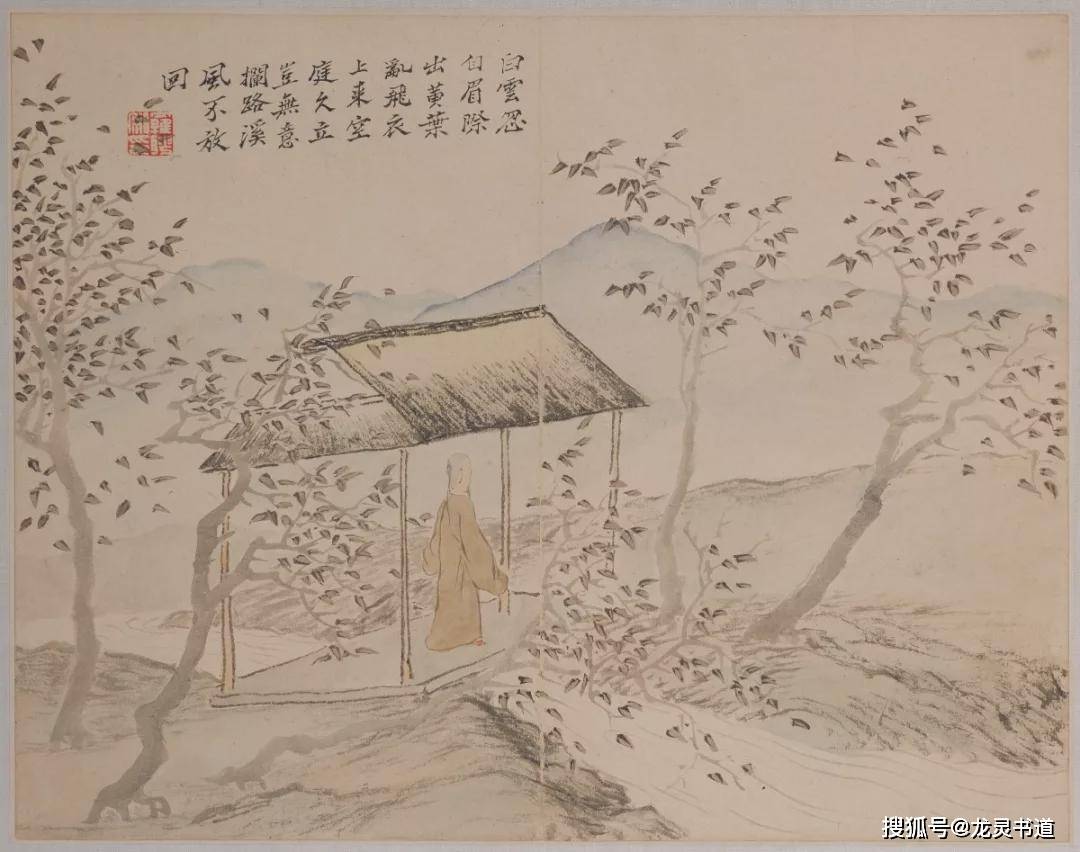 白雲忽
自眉際
出黃葉
亂飛衣
上来空
庭久立
豈無意
攔路溪
風不放
回
搜狐号@龙灵书道